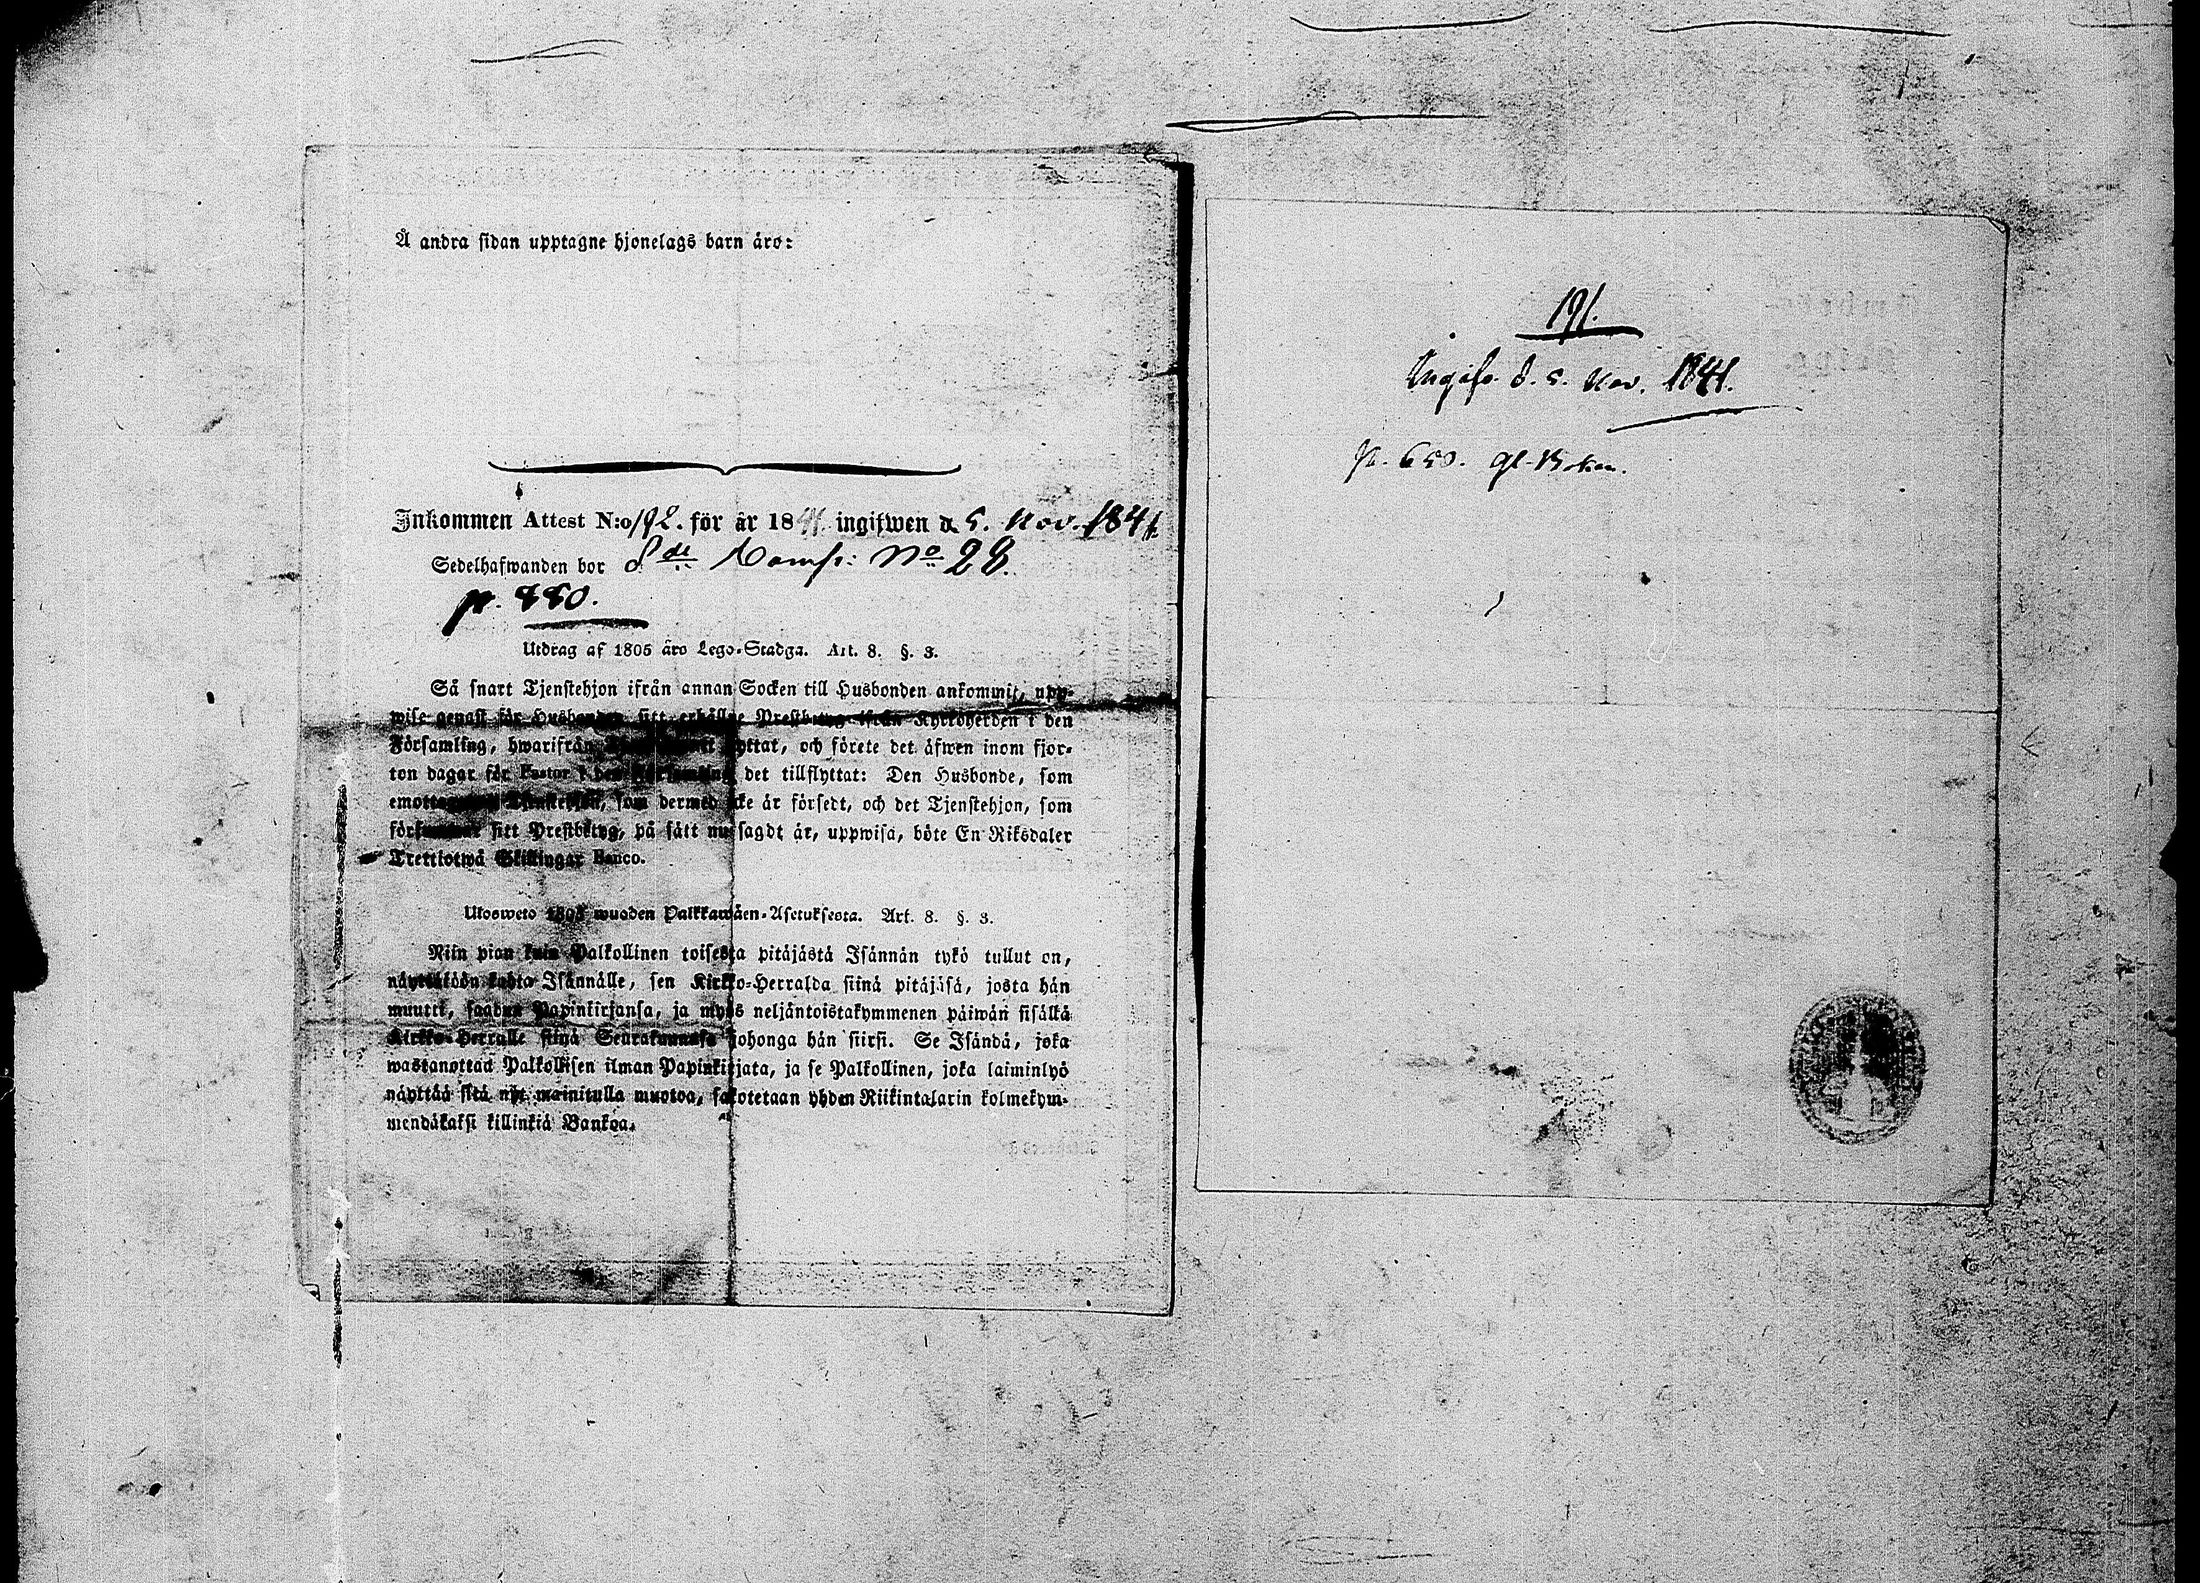 Å andra sidan upptagne hjonelags barn äro:
Inkommen Attest N:o 192. för år 1841. ingifwen d. 5. Nov. 1841.
Sedelhafwanden bor 8de Komp: No 28.
p. 880.
Utdrag af 1805 års Lego-Stadga. Art. 8. §. 3.
Så snart Tjenstehjon ifrån annan Socken till Husbonden ankommit, upp-
wise genast för Husbonden sitt erhållne Prestbetyg ifrån Kyrkoherden i den
Församling, hwarifrån flyttat, och förete det äfwen inom fjor-
ton dagar för Pastor i den Församling det tillflyttat: Den Husbonde, som
emottager Tjenstehjon, som dermed icke är försedt, och det Tjenstehjon, som
försummar sitt Prestbetyg, på sätt nu sagdt är, uppwisa, böte En Riksdaler
Trettiotwå Skillingar Banco.
Ulosweto 1805 wuoden Palkkawäen-Asetuksesta. Art. 8. §. 3.
Niin pian kuin Palkollinen toisesta pitäjästä Isännän tykö tullut on,
näyttäköön kohta Isännälle, sen Kirkko-Herralda siinä pitäjäsä, josta hän
muutti, saadun Papinkirjansa, ja myös neljäntoistakymmenen päiwän sisällä
Kirkko-Herralle siinä Seurakunnasa johonga hän siirsi. Se Isändä, joka
wastanottaa Palkollisen ilman Papinkirjata, ja se Palkollinen, joka laiminlyö
näyttää sitä nyt mainitulla muotoa, sakotetaan yhden Riikintalarin kolmekym-
mendäkaksi killinkiä Bankoa.
191.
Ingifv. d. 5. Nov. 1841.
p. 650. gl. Boken.